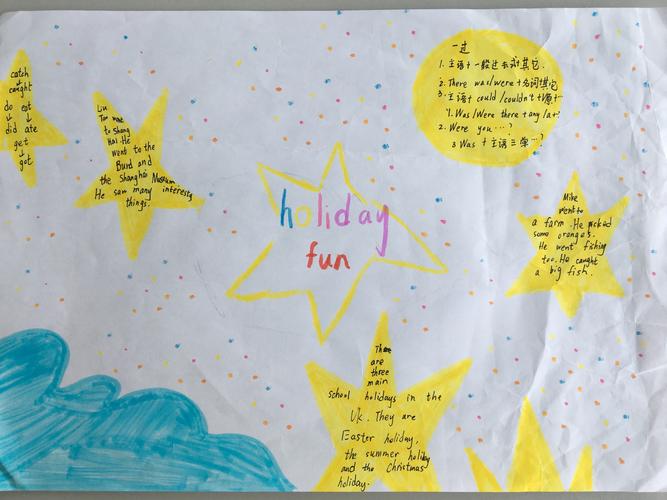 catch
↓
caught
do eat
↓ ↓
did ate
get
↓
got
Liu
Tao went
to Shang
Hai. He
went to the
Bund and
the Shanghai Museum
He saw many interesty
things.
holiday
fun
一过
1. 主语+一般过去式+其它.
2. There was/were+名词+其它
3. 主语+could/couldn't+原+
1. Was/Were there+any/a+?
2. Were you…?
3 Was+主语三单…?
Mike
went to
a farm. He picked
some oranges.
He went fishing
too. He caught
a big fish.
There
are
three
main
school holidays in the
Uk. They are
Easter holiday,
the summer holiday
and the Christmas
holiday.